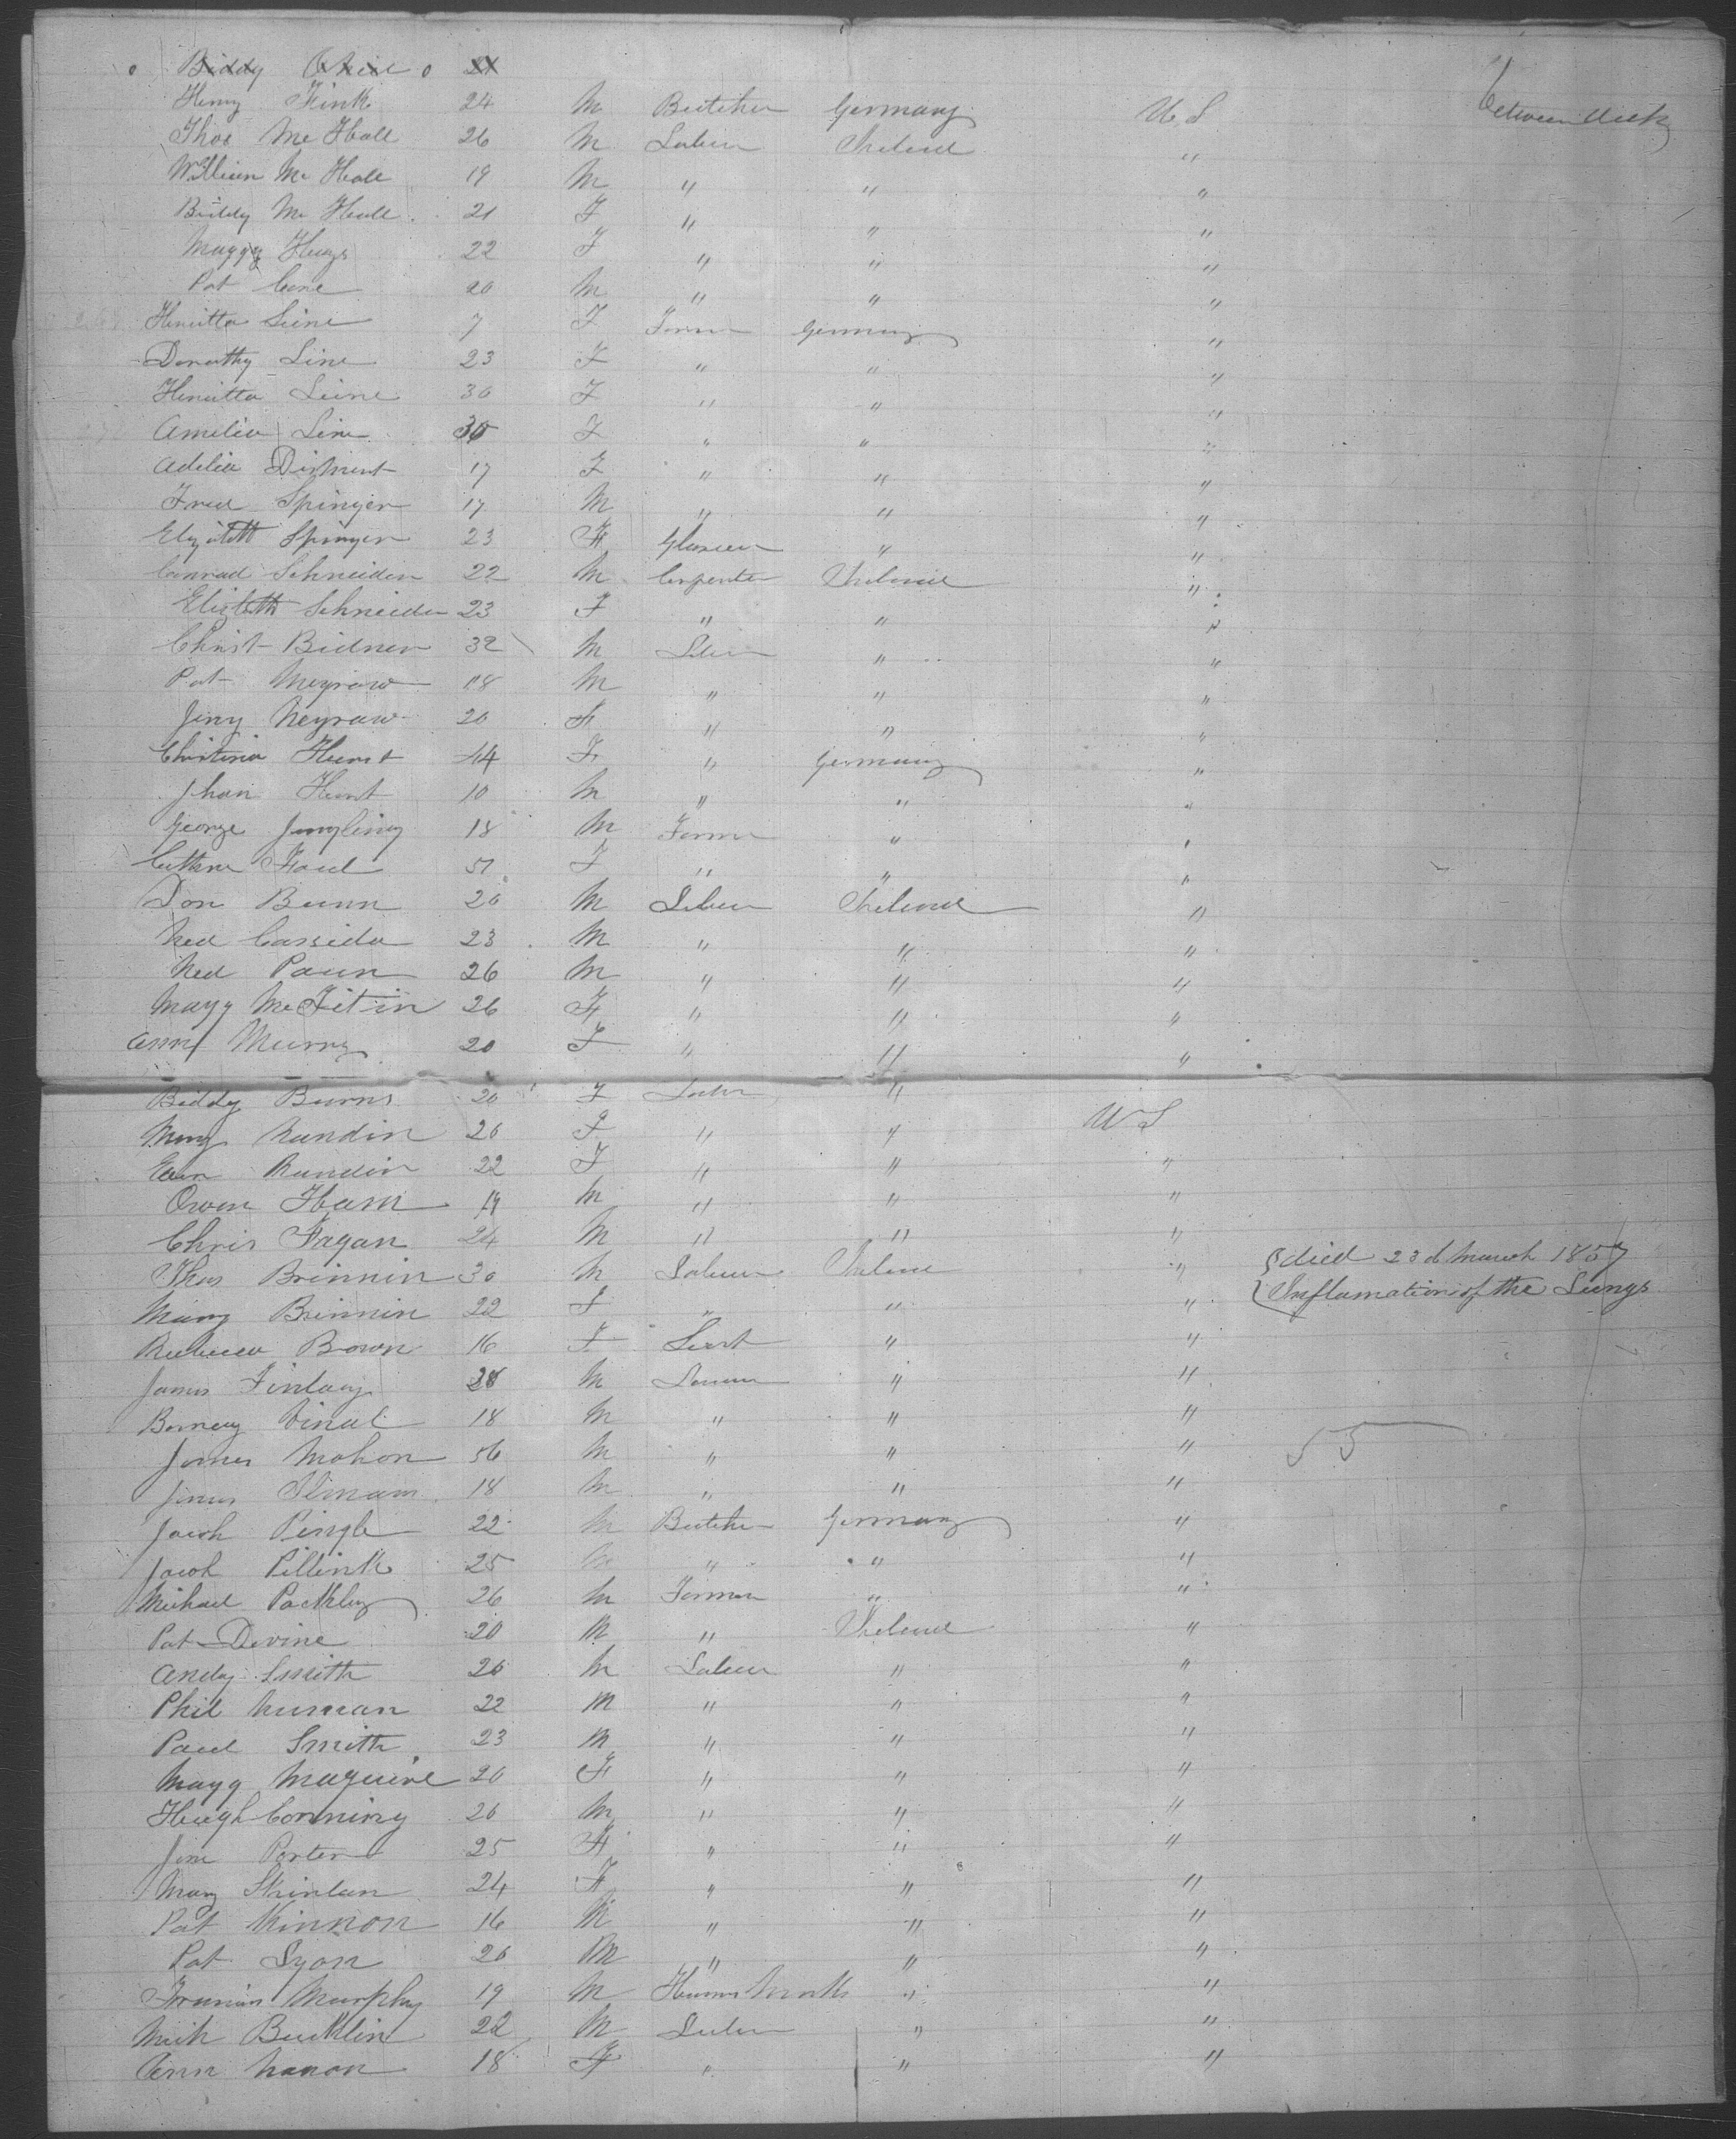 Biddy 21
Henry Fink 24 M Butcher Germany U S between decks
Thos Mc Hall 26 M Labour Ireland "
William Mc Hall 19 M " " "
Biddy Mc Hall 21 F " " "
Maggy Hugs 22 F " " "
Pat Cone 20 M " " "
Henritta Line 7 F Farmer Germany "
Dorathy Line 23 F " " "
Henritta Line 30 F " " "
Amelia Line 30 F " " "
Adelia 17 F " " "
Fred Springer 17 M " " "
Elizabeth Springer 23 F " "
Conrad Schneider 22 M Carpenter Ireland "
Elizbeth Schneider 23 F " " "
Christ Bidner 32 M Labour " "
Pat Megraw 18 M " " "
Jiny Megraw 20 F " " "
Christinia Hurst 14 F " Germany "
Jhan Hurst 10 M " " "
George Jungling 18 M Farmer " "
51 F " " "
Don Bunn 20 M Labour Ireland "
Ned Cassida 23 M " " "
Ned Paun 26 M " " "
Magg Mc Fitin 26 F " " "
Ann Murry 20 F " " "
Biddy Burns 20 F Labor " U S
Mary Rundin 20 F " "
Rundin 22 F " " "
Owen Ham 19 M " " "
Chris Fagan 24 M " " "
Thos Brinnin 30 M Labour Ireland " died 23d March 1857
Mary Brinnin 22 F " " " Inflamation of the Lungs
Rebecca Brown 16 F " "
James Finlay 28 M Labour " "
Barney 18 M " " "
James Mahon 56 M " " " 55
James 18 M " " "
Jacob Pingle 22 M Butcher Germany "
Jacob Pillink 25 M " " "
Michael Packley 26 M Farmer " "
Pat Devine 20 M " Ireland "
Andy Smith 20 M Labour " "
Phil Nunan 22 M " " "
Paul Smith 23 M " " "
Magg Maguire 20 F " " "
Hugh Conning 20 M " " "
Jane Porter 25 F " " "
Mary 24 F " " "
Pat Kinnon 16 M " " "
Pat Lyon 20 M " " "
Francis Murphy 19 M " "
Mich Bucklin 22 M Labor " "
Ann Nanon 18 F " " "